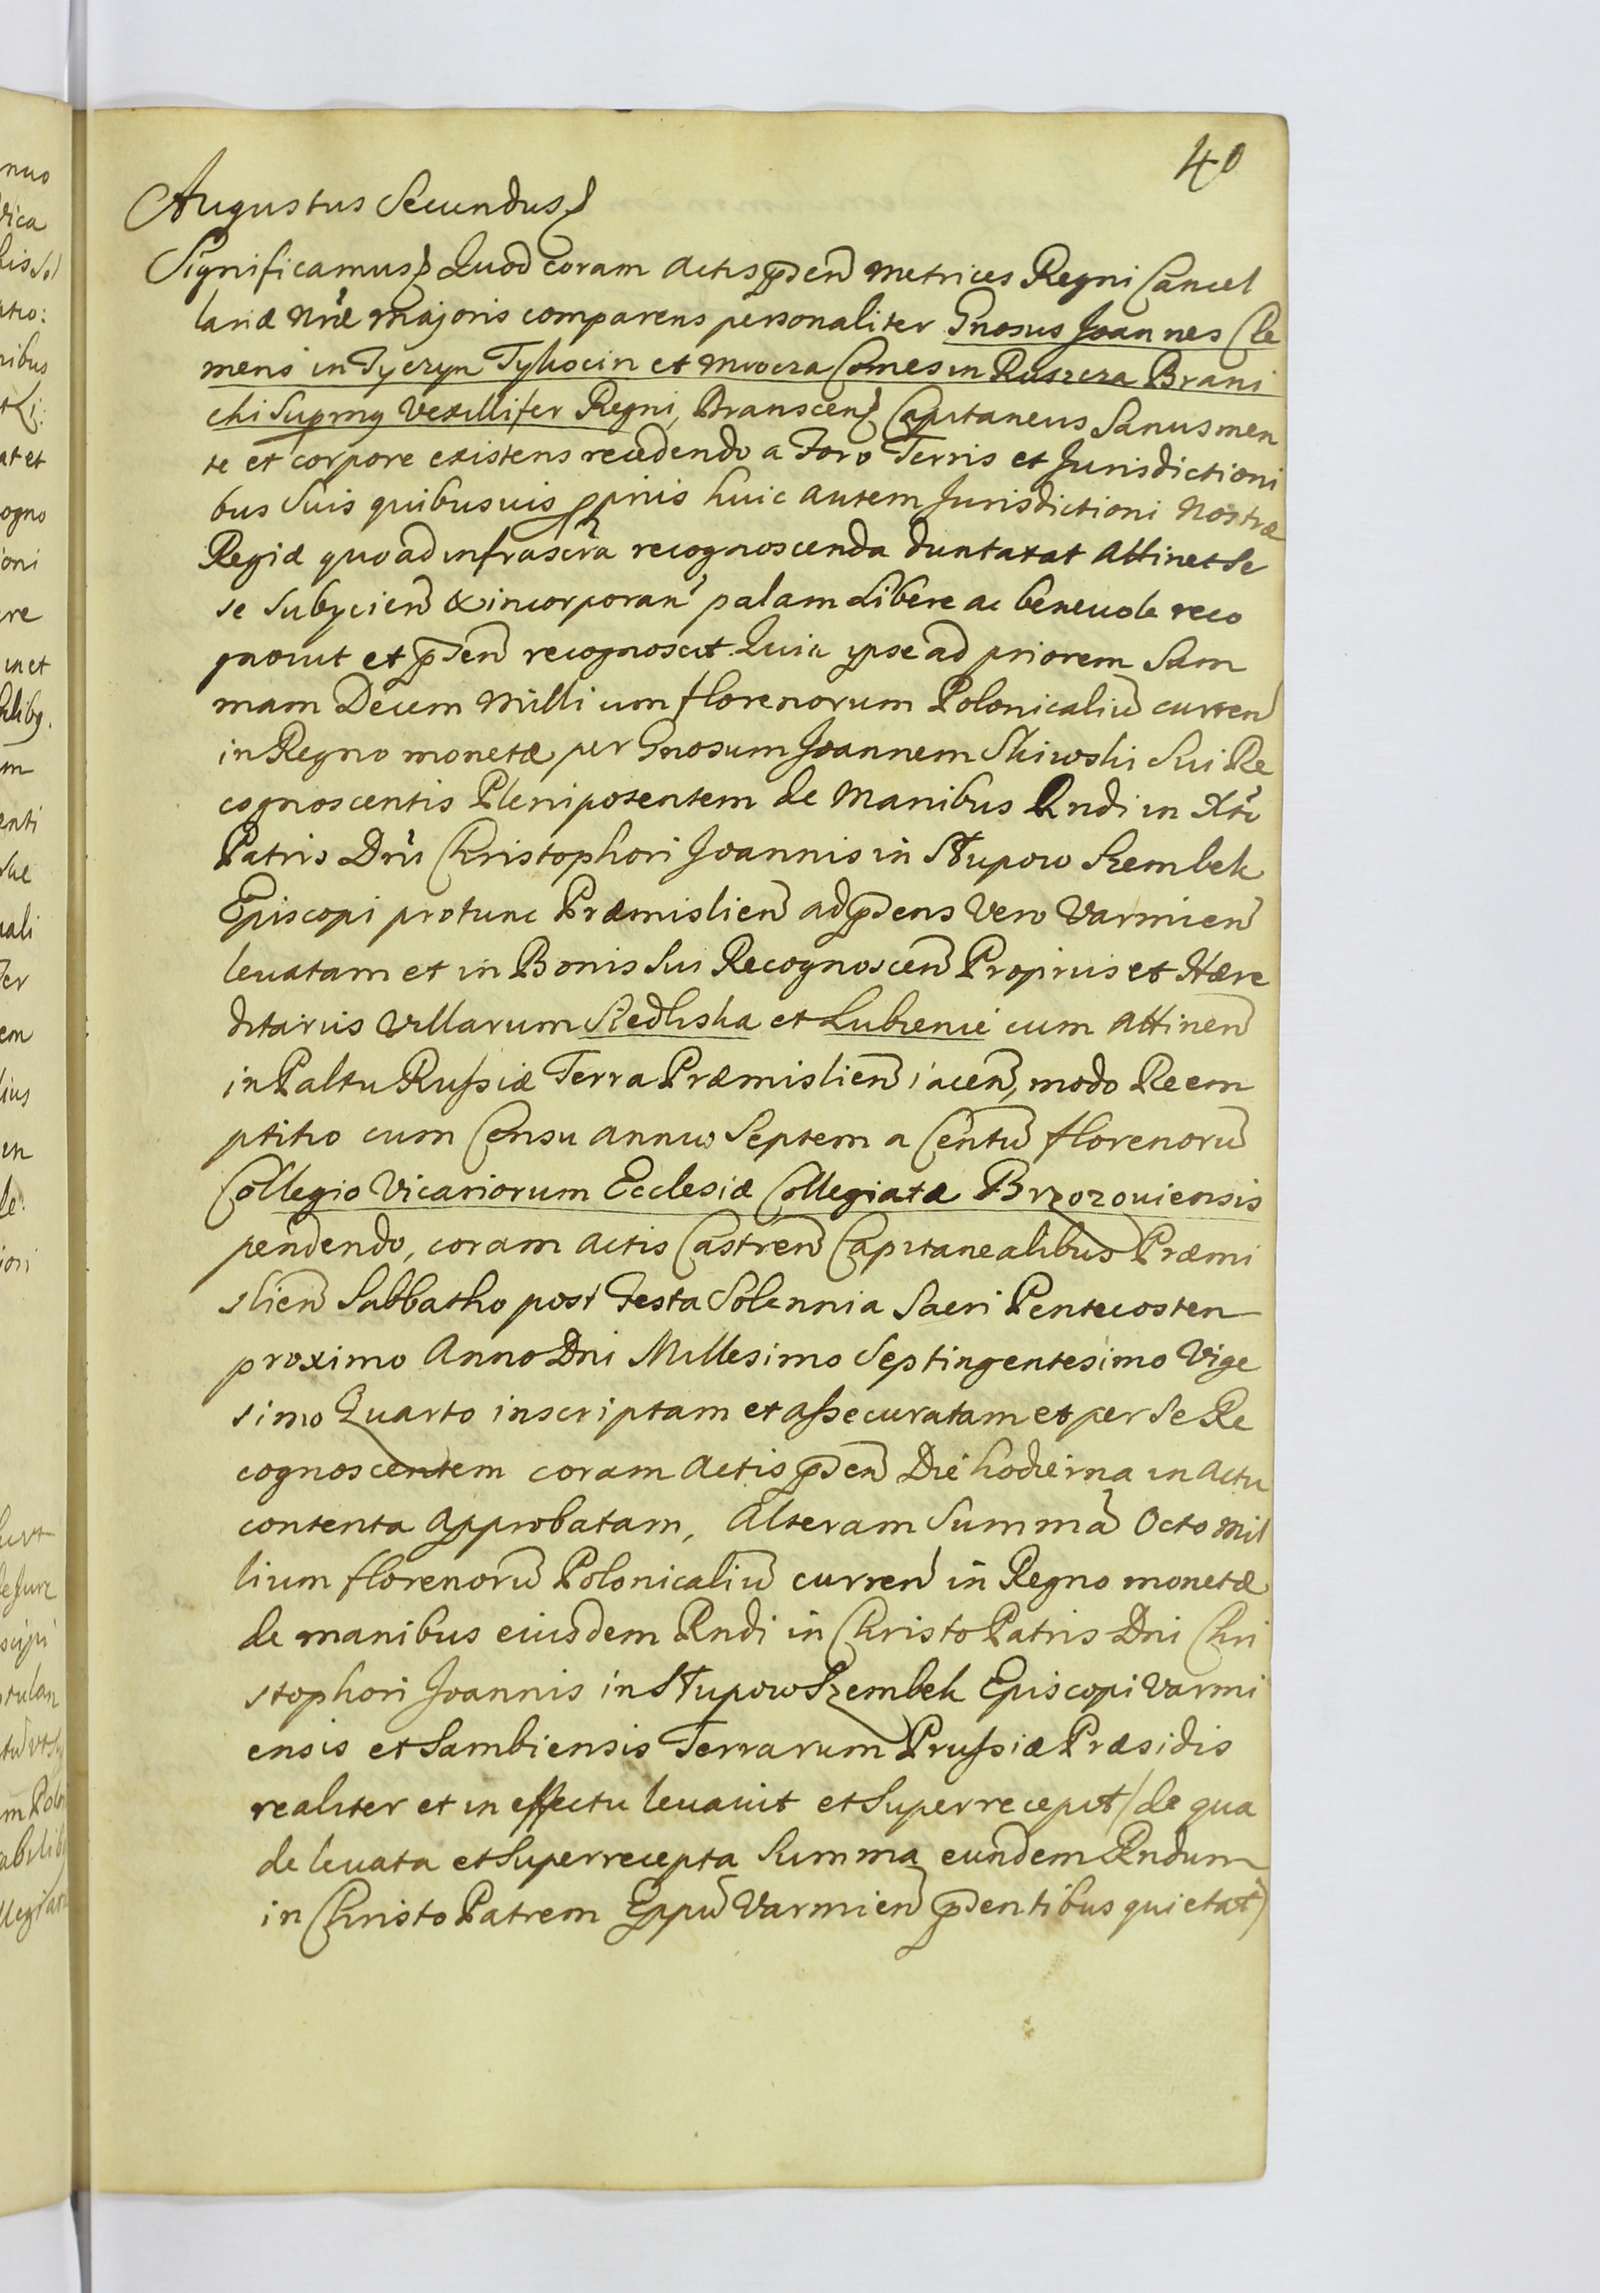 40
Augustus Secundus
Significamus Quod coram Actis p̄sen̄ Metrices Regni Cancel
lariæ Nr̄æ Majoris comparens personaliter Gnosus Joannes Cle
mens in Tyczyn Tykocin et Mwocza Comes in Ruszcza Brani
cki Supmg Vexillifer Regni, Branscen Capitaneus Sanus men
te et corpore existens recedendo a Foro Terris et Jurisdictioni
bus Suis quibusuis pp̄riis huic autem Jurisdictioni Nostræ
Regiæ quo ad infrascr̄a recognoscenda duntaxat Attinet se
se Subycien̄ & incorporan̄ palam Libere ac beneuole reco
gnouit et p̄sen̄ recognoscit. Quia ipse ad priorem Sum
mam Decem Milli um florenorum Polonicaliū curren̄
in Regno monetæ per Gnosum Joannem Skiwski Sui Re
cognoscentis Plenipotentem de Manibus Rndi in Xt̄o
Patris Dn̄i Christophori Joannis in Słupow Szembek
Episcopi protunc Præmislien̄ ad p̄sens Vero Varmien̄
leuatam et in Bonis Sui Recognoscen̄ Propriis et Hære
ditariis Villarum Siedliska et Lubzenie cum Attinen̄
in Paltu Russiæ Terra Præmislien̄ iacen̄, modo Reem
ptitio cum Censu annuo Septem a Centū florenorū
Collegio Vicariorum Ecclesiæ Collegiatæ Brzozouiensis
pendendo, coram actis Castren̄ Capitanealibus Præmi
slien̄ Sabbatho post Festa Solennia Sacri Pentecosten
proximo Anno Dni Millesimo Septingentesimo Vige
simo Quarto inscriptam et assecuratam et per Se Re
cognoscentem coram Actis p̄sen̄ Die hodierna in Actu
contenta Approbatam, Alteram Summā Octo Mil
lium florenorū Polonicaliū curren̄ in Regno monetæ
de manibus eiusdem Rndi in Christo Patris Dni Chri
stophori Joannis in Słupow Szembek Episcopi Varmi
ensis et Sambiensis Terrarum Prussiæ Præsidis
realiter et in effectu leuauit et Superrecepit / de qua
de leuata et Superrecepta Summa eundem Rndum
in Christo Patrem Eppū Varmien̄ p̄sentibus quietat)